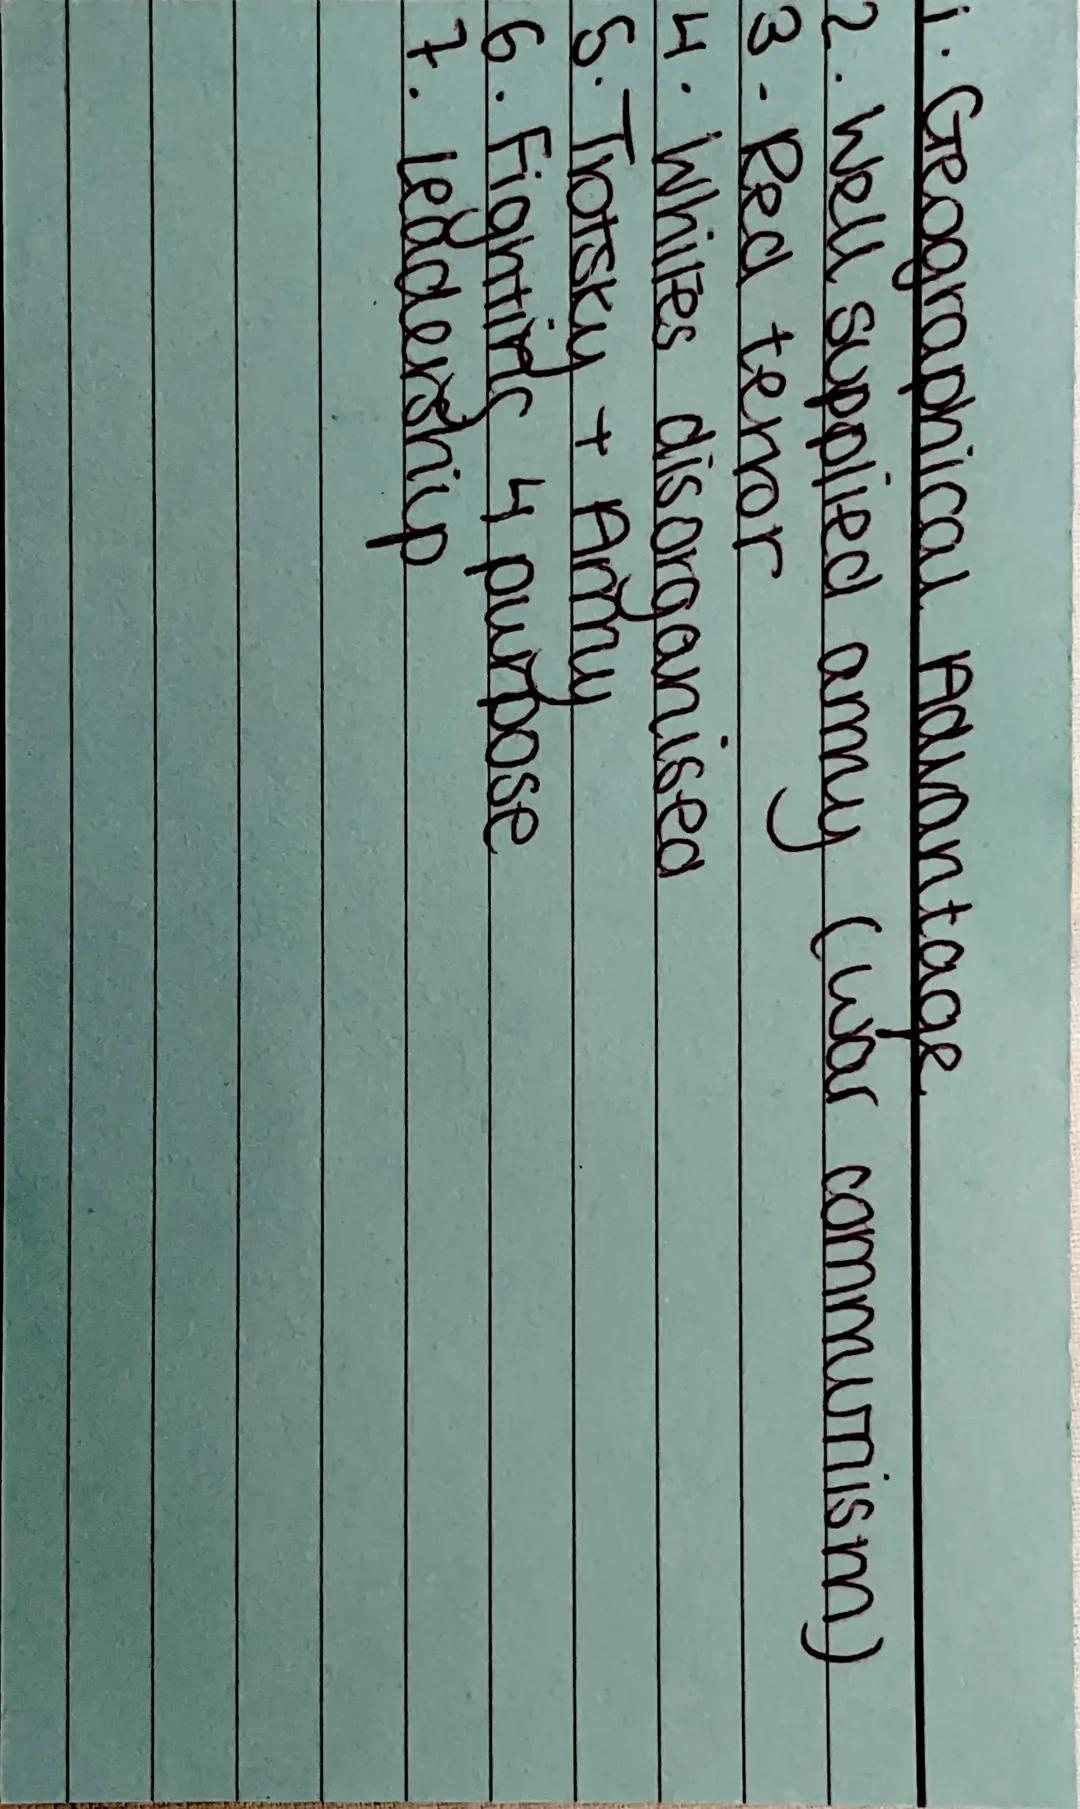 1. Geographical Advantage
2. Well supplied army (war communism)
3. Red terror
4. Whites disorganised
5. Trotsky + Army
6. Fighting 4 purpose
7. Leadership